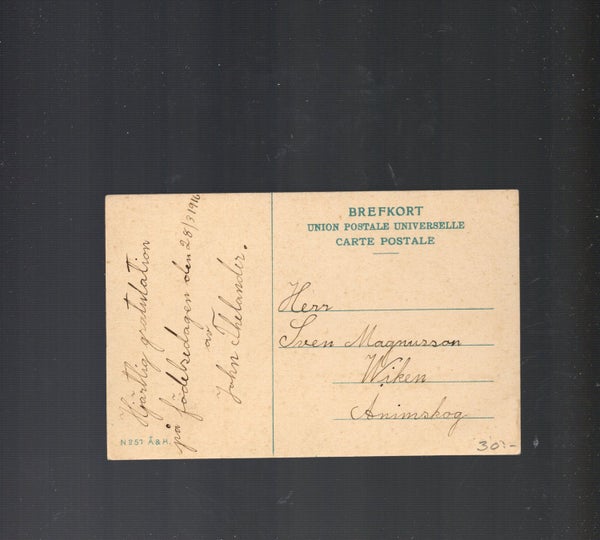 Hjärtlig gratulation
på födelsedagen den 28/3 1916
av
John Thelander.
N 257 Å & H.
BREFKORT
UNION POSTALE UNIVERSELLE
CARTE POSTALE
Herr
Sven Magnusson
Wiken
Animskog
30:-